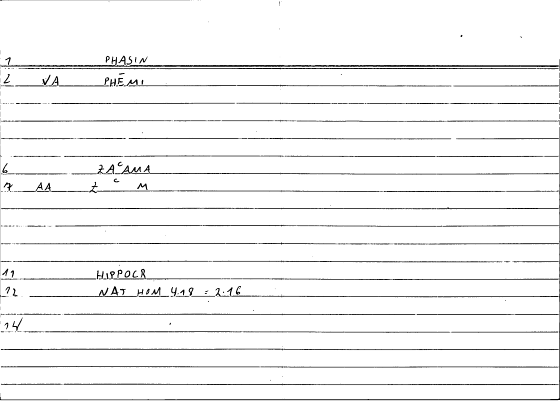 1 PHASIN
2 VA PHĒMI
6 ZAᶜAMA
7 AA Z ᶜ M
11 HIPPOCR
12 NAT HOM 4.18 = 2.16
14/